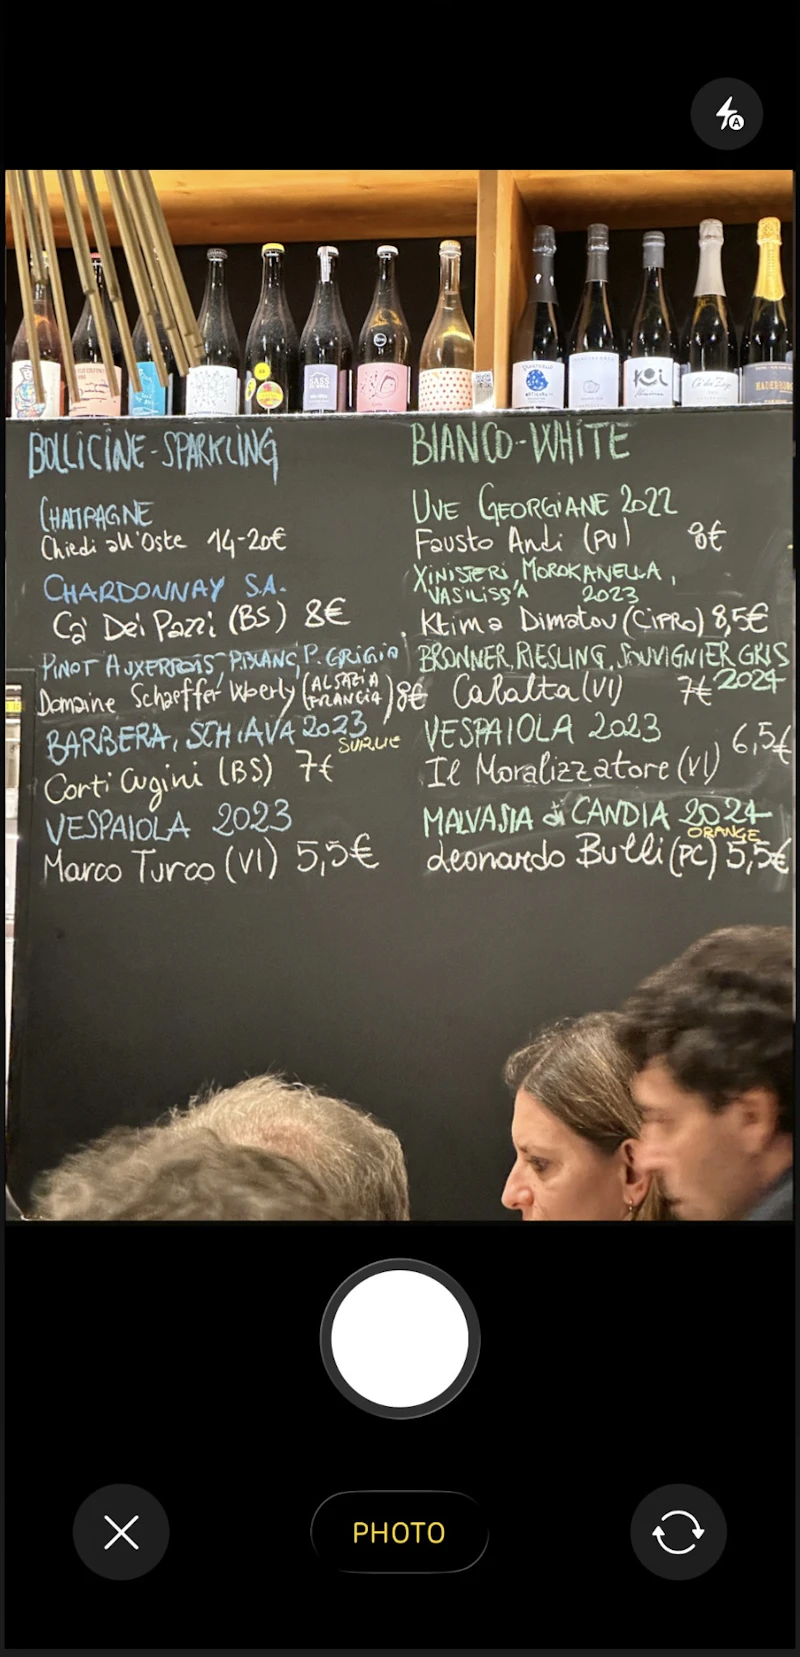 BOLLICINE-SPARKLING
CHAMPAGNE
Chiedi all'Oste 14-20€
CHARDONNAY S.A.
Cà Dei Pazzi (BS) 8€
PINOT AUXERROIS, P.BIANC, P. GRIGIO
Domaine Schaeffer-Woerly (ALSAZIA FRANCIA) 8€
BARBERA, SCHIAVA 2023
SUR LIE
Corti Cugini (BS) 7€
VESPAIOLA 2023
Marco Turco (VI) 5,5€
BIANCO-WHITE
UVE GEORGIANE 2022
Fausto Andi (PV) 8€
XINISTERI MOROKANELLA,
VASILISS'A 2023
Ktima Dimatou (CIPRO) 8,5€
BRONNER, RIESLING, SOUVIGNIER GRIS
2024
Calalta (VI) 7€
VESPAIOLA 2023
Il Moralizzatore (VI) 6,5€
MALVASIA di CANDIA 2024
ORANGE
Leonardo Bulli (PC) 5,5€
PHOTO